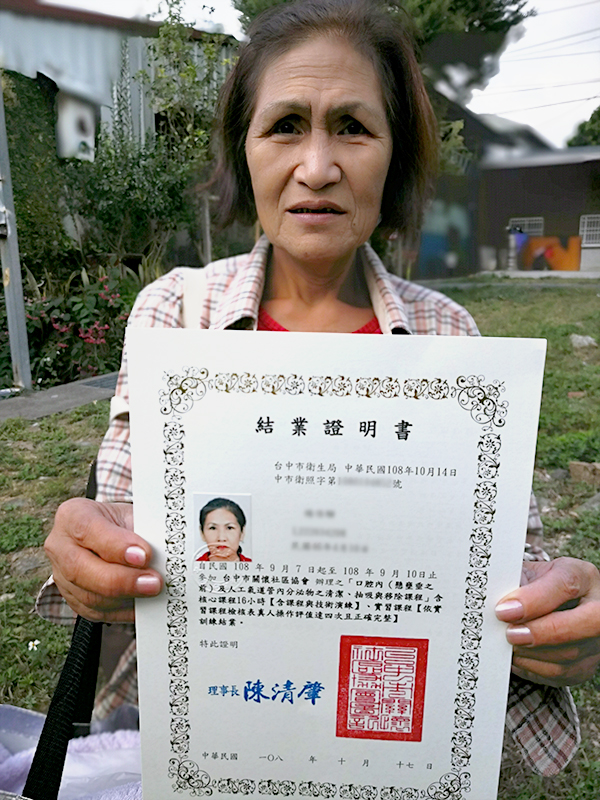 結業證明書
台中市衛生局 中華民國108年10月14日
中市衛照字第 號
自民國 108 年 9 月 7 日起至 108 年 9 月 10 日止
參加 台中市關懷社區協會 辦理之「口腔內(懸壅垂之
前)及人工氣道管內分泌物之清潔、抽吸與移除課程」含
核心課程16小時【含課程與技術演練】、實習課程【依實
習課程檢核表真人操作評值達四次且正確完整】
訓練結業。
特此證明
理事長 陳清肇
中華民國 一〇八 年 十 月 十七 日